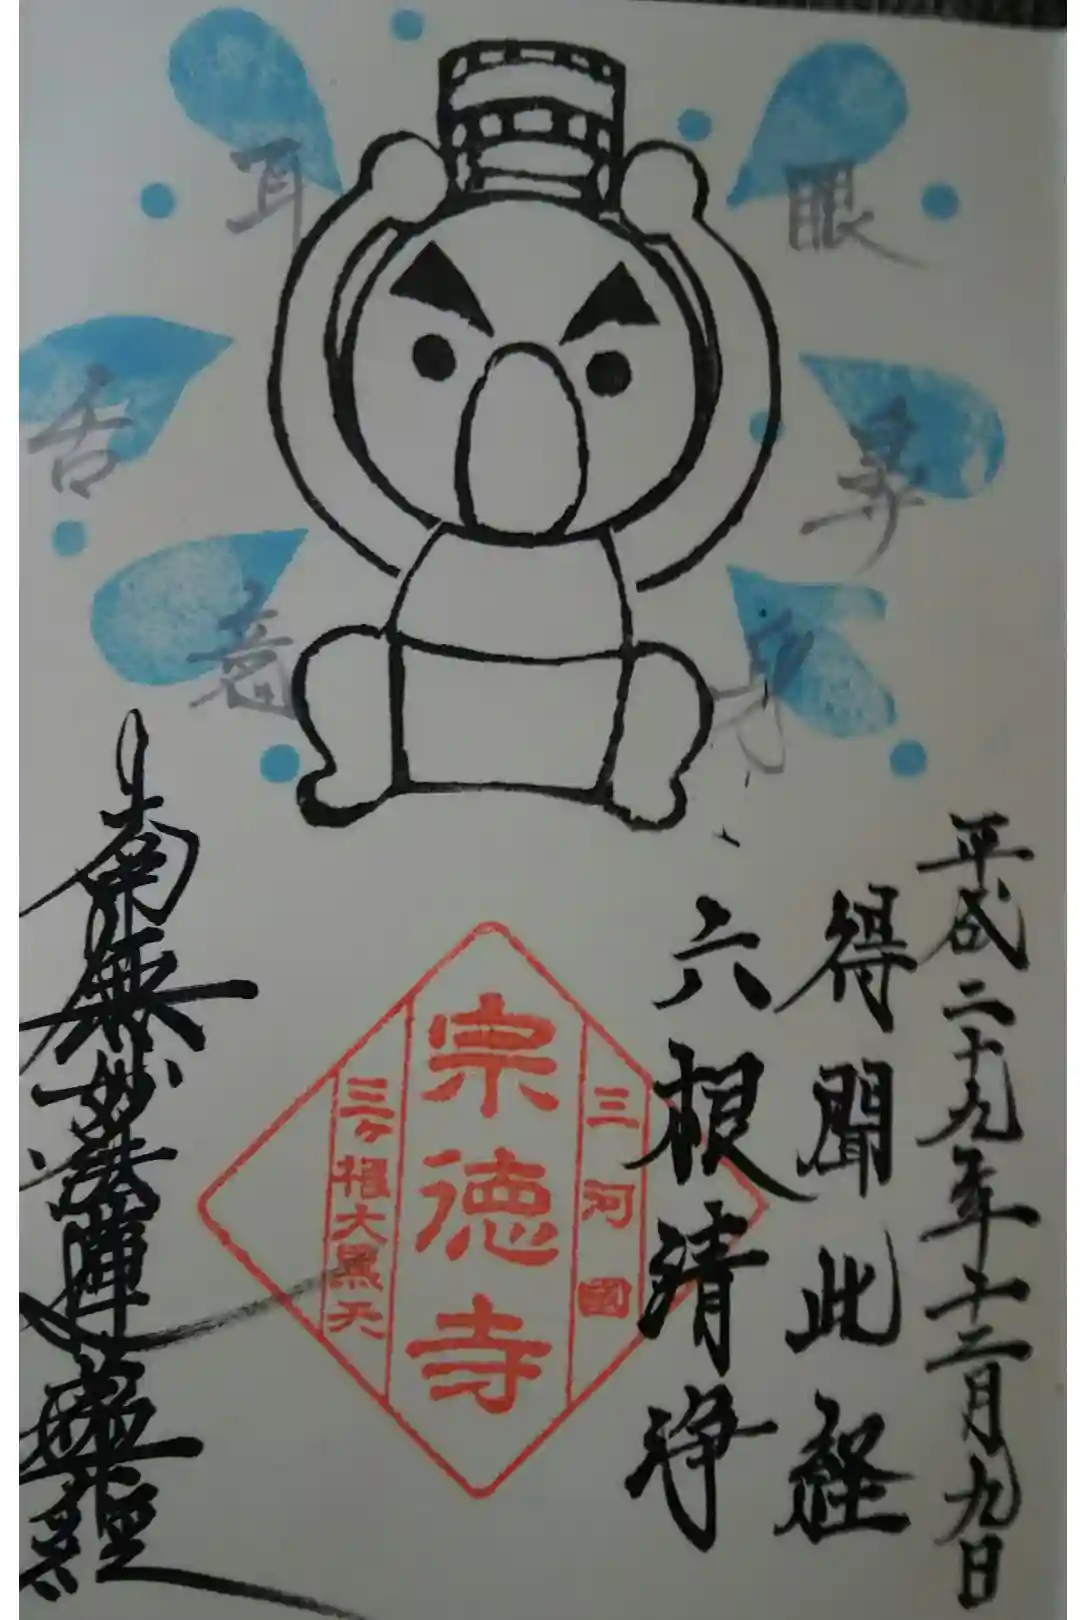 眼
耳
鼻
舌
身
意
平成二十九年十二月九日
得聞此経
六根清浄
三河國
宗徳寺
三ヶ根大黒天
南無妙法蓮華経